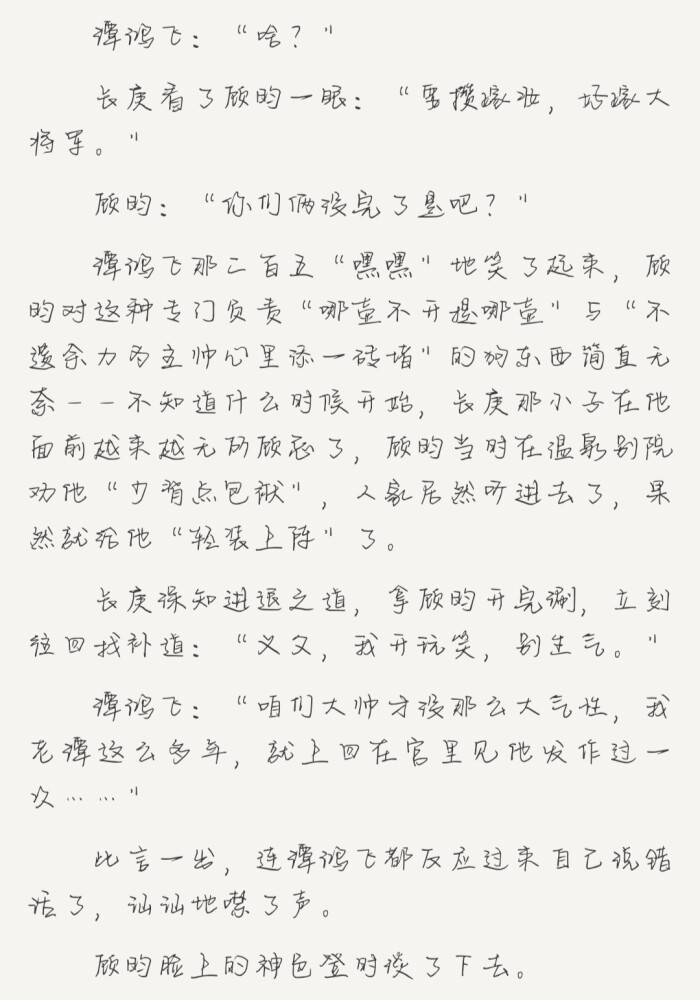 谭鸿飞：“啥？”
长庚看了顾昀一眼：“要攒嫁妆，好嫁大
将军。”
顾昀：“你们俩没完了是吧？”
谭鸿飞那二百五“嘿嘿”地笑了起来，顾
昀对这种专门负责“哪壶不开提哪壶”与“不
遗余力为主帅心里添一砖堵”的狗东西简直无
奈——不知道什么时候开始，长庚那小子在他
面前越来越无所顾忌了，顾昀当时在温泉别院
劝他“少背点包袱”，人家居然听进去了，果
然就给他“轻装上阵”了。
长庚深知进退之道，拿顾昀开完涮，立刻
往回找补道：“义父，我开玩笑，别生气。”
谭鸿飞：“咱们大帅才没那么大气性，我
老谭这么多年，就上回在宫里见他发作过一
次……”
此言一出，连谭鸿飞都反应过来自己说错
话了，讪讪地噤了声。
顾昀脸上的神色登时淡了下去。